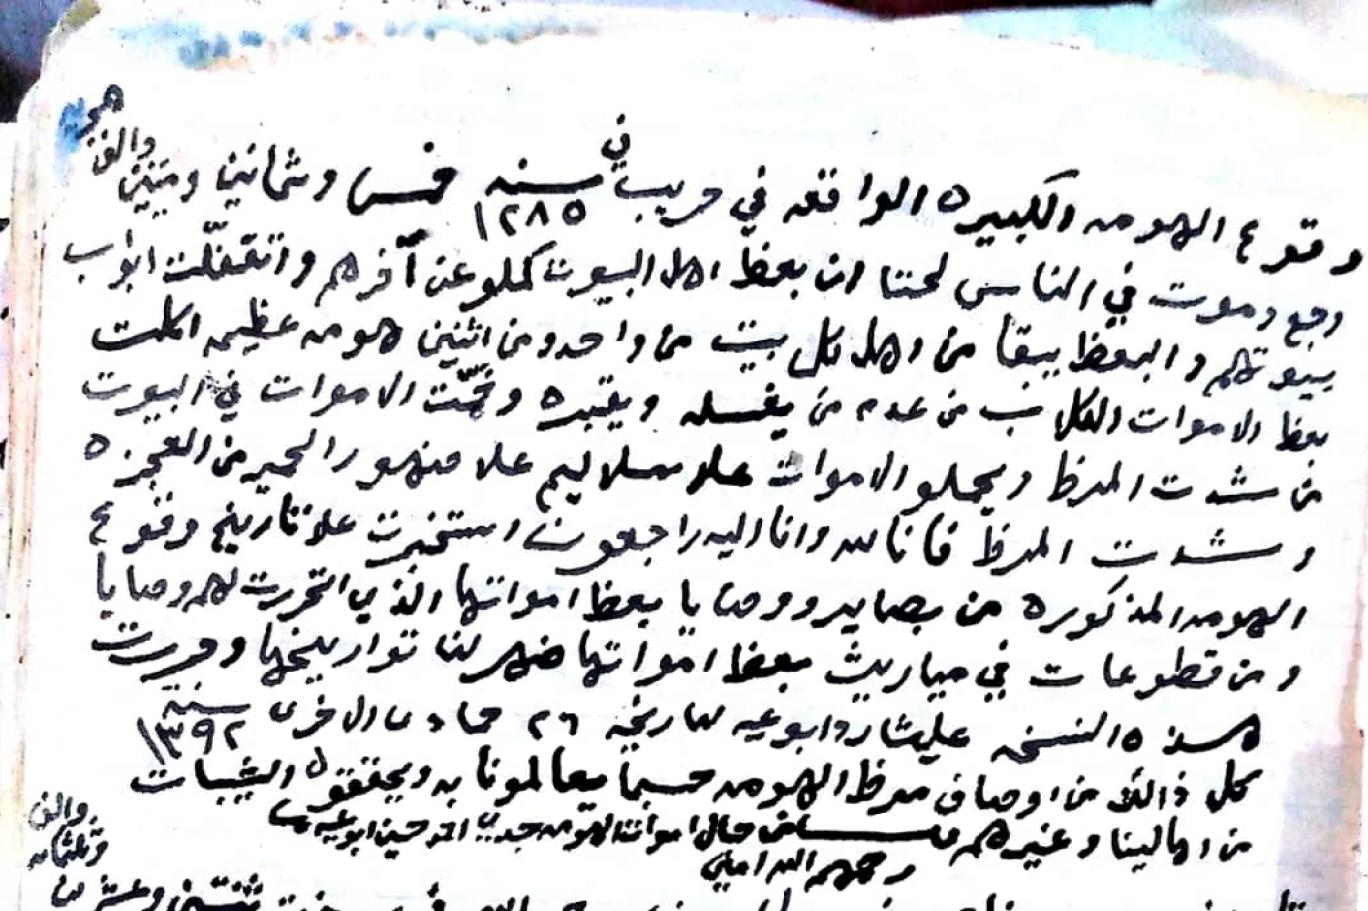 وقوع الهومه الكبيره الواقعه في حريب في سنه ١٢٨٥ خمس وثمانين وميتين والف هجريه
وجع وموت في الناس لحتا ان بعظ اهل البيوت كملو عن آخرهم واتقفلت ابواب
بيوتهم والبعظ يبقا من اهل كل بيت من واحد ومن اثنين هومه عظيمه اكلت
بعظ الاموات الكلاب من عدم من يغسله ويقبره وخمّت الاموات في البيوت
من شدت المرظ ويحملو الاموات علا سلاليم علا ضهور الحمير من العجزه
وشدت المرظ فانا لله وانا اليه راجعون استخبرت علا تاريخ وقوع
الهومه المذكوره من بصاير ووصايا بعظ امواتها الذي اتحررت لهم وصايا
ومن قطوعات في مياريث بعظ امواتها ضهر لنا تواريخها وحررت
هذه النسخه علي شارد ابوعيه بتاريخه ٢٦ جمادى الاخرى سنة ١٣٩٢
كل ذالك من اوصاف مرظ الهومه حسبما يعالمونا به ويحققون الشيبات والف
من اهالينا وغيرهم من حال اموات الهومه جدي احمد حسين ابوعيه وثلثمائه
رحمهم الله امين